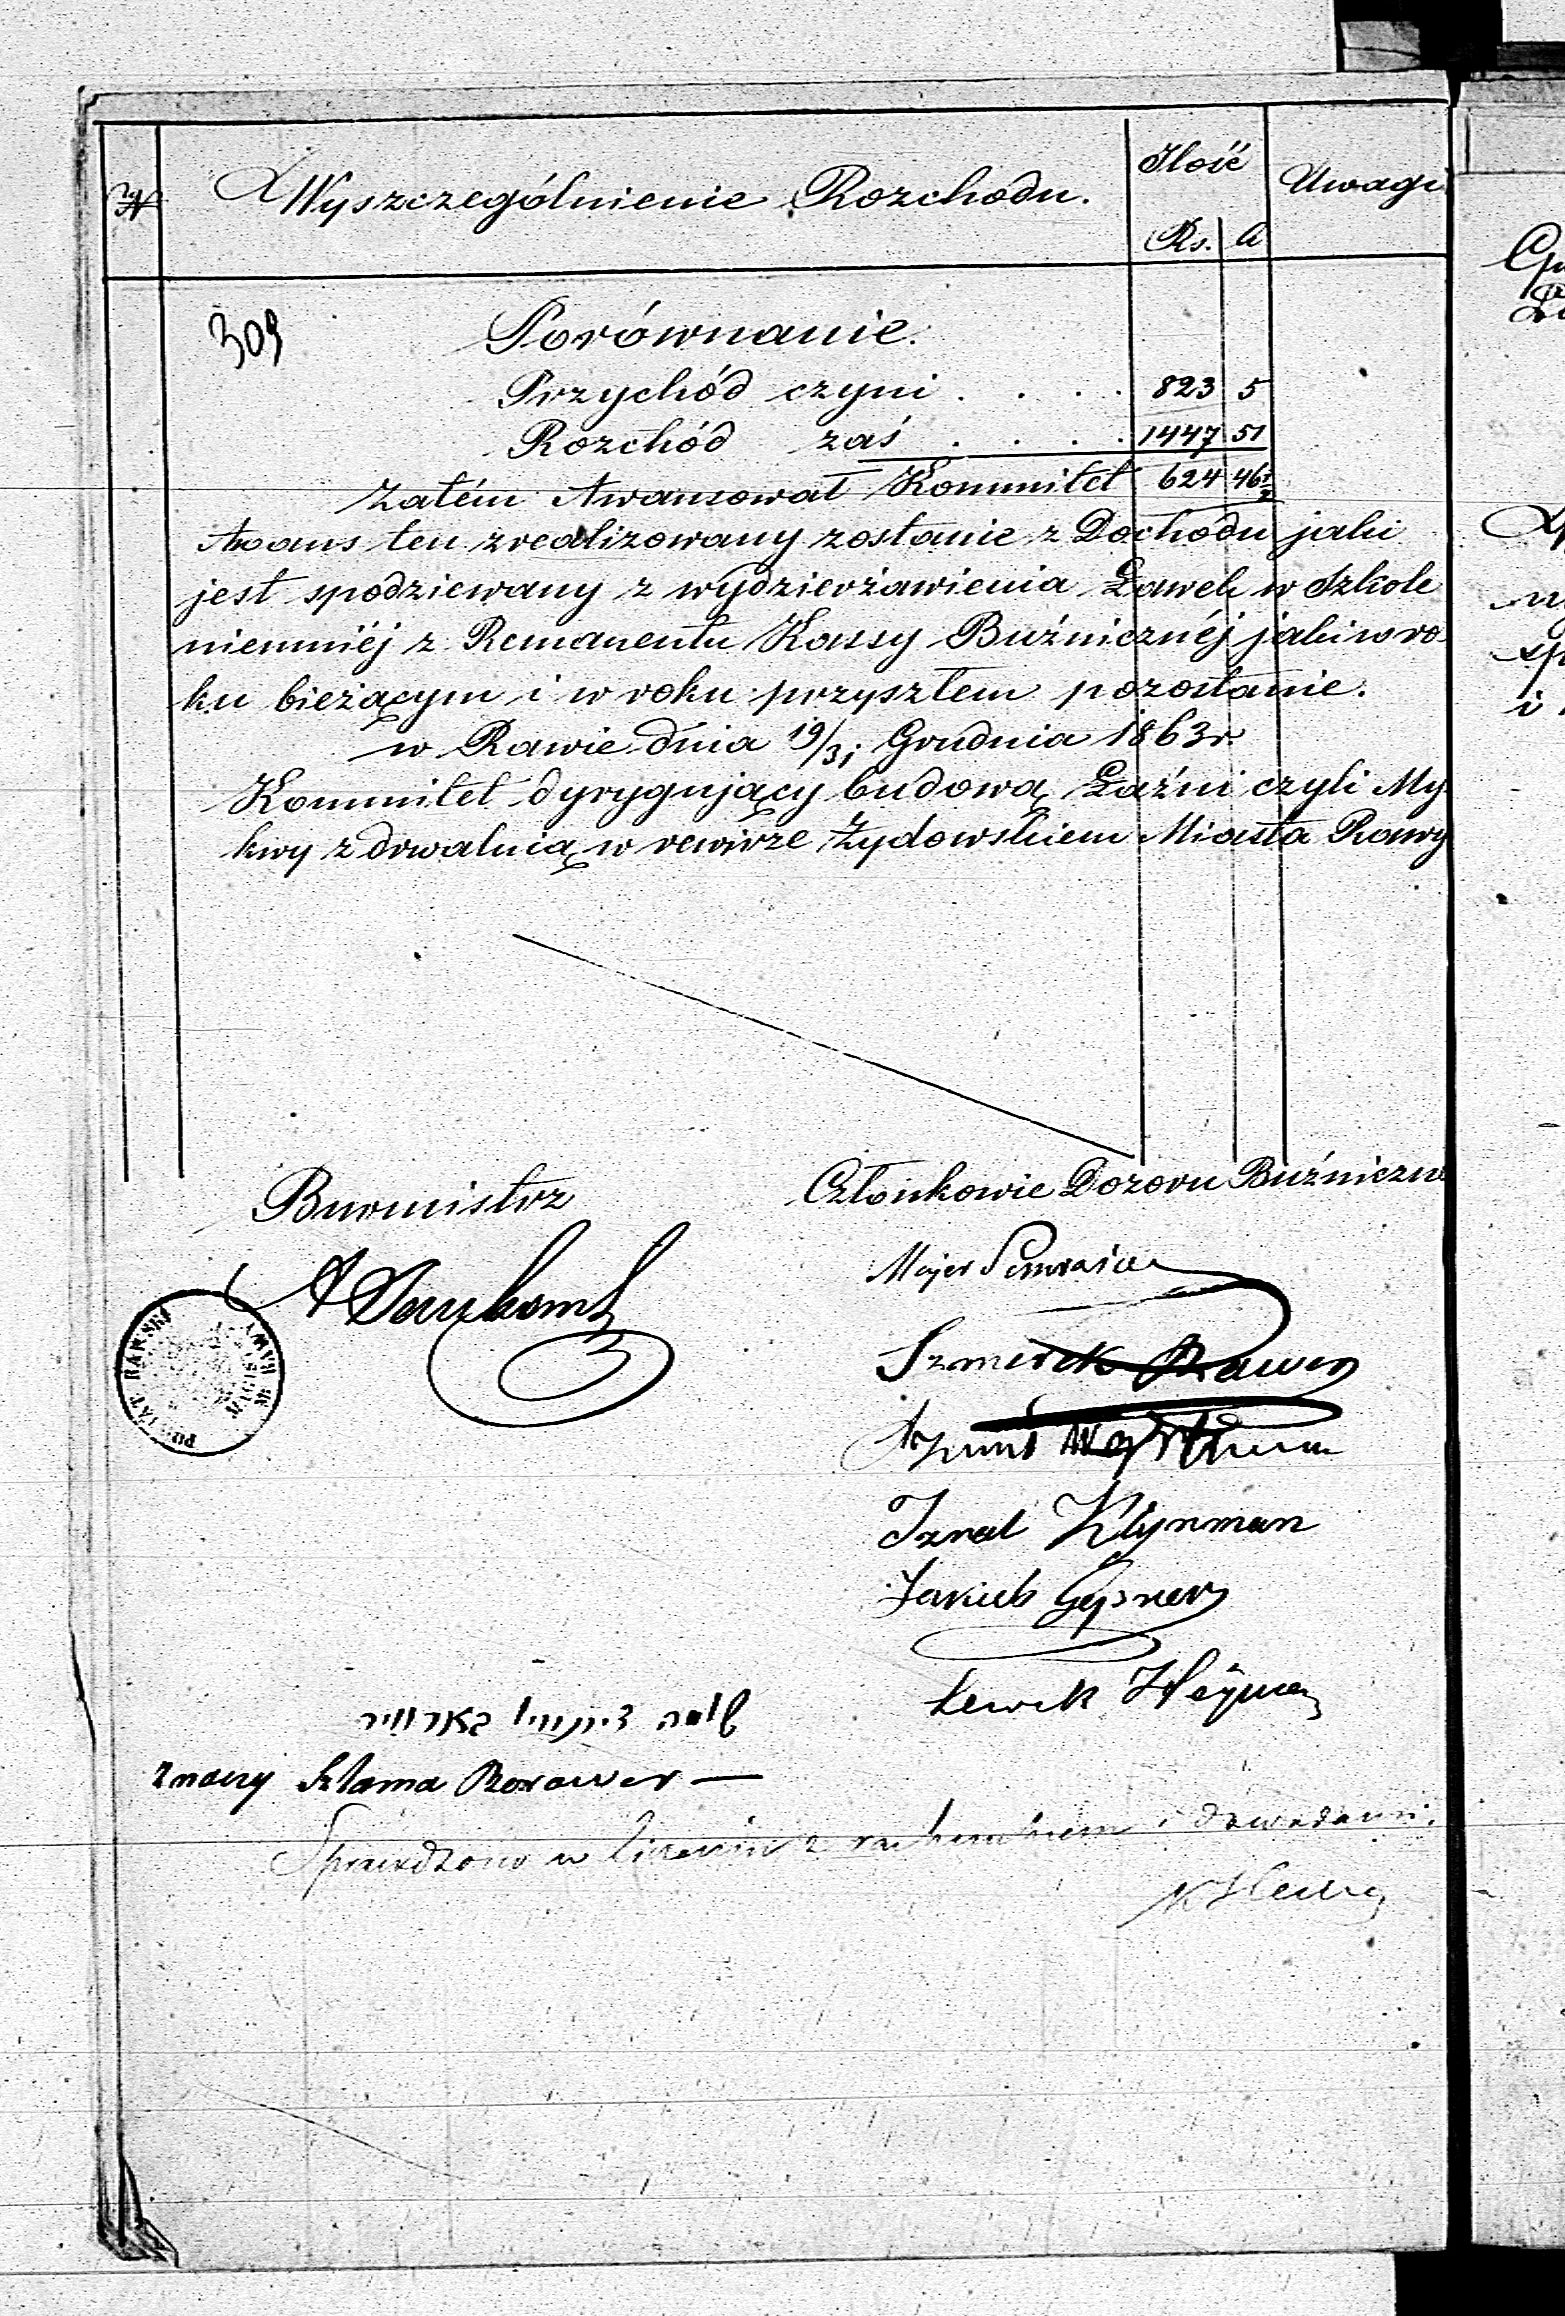 № Wyszczególnienie Rozchodu. Ilość Uwagi
Rs. k
309 Porównanie.
Przychód czyni . . . . 823 5
Rozchód zaś . . . . 1447 51
Zatém Awansował Kommitet 624 46½
Awans ten zrealizowany zostanie z Dochodu jaki
jest spodziewany z wydzierżawienia Ławek w Szkole
niemniéj z Remanentu Kassy Buźnicznéj jaki w ro
ku bieżącym i w roku przyszłem pozostanie.
w Rawie dnia 19/31 Grudnia 1863 r.
Kommitet dyrygujący budową Łaźni czyli My
kwy z drwalnią w rewirze Żydowskiem Miasta Rawy
Burmistrz
Członkowie Dozoru Buźniczne
Majer
Szmerek Rawer
Izrael Klynman
Jakub Gypner
Lewek
POWIAT RAWSKI
שלמה
znaczy Szlama
Sprawdzono w z rachunkiem i dowodami.